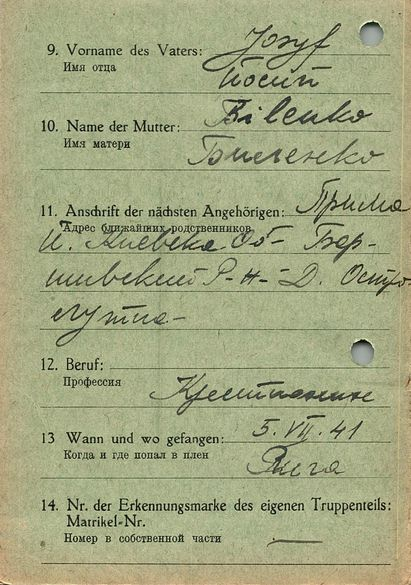 9. Vorname des Vaters: Jozyf
Имя отца Йосип
10. Name der Mutter: Bilenko
Имя матери Биленко
11. Anschrift der nächsten Angehörigen:
Адрес ближайших родственников
Киевска Об- Бар-
шивский Р-н- Д. Остро
лутча-
12. Beruf:
Профессия Крестьянин
13 Wann und wo gefangen: 5. VII. 41
Когда и где попал в плен Рига
14. Nr. der Erkennungsmarke des eigenen Truppenteils:
Matrikel-Nr.
Номер в собственной части —